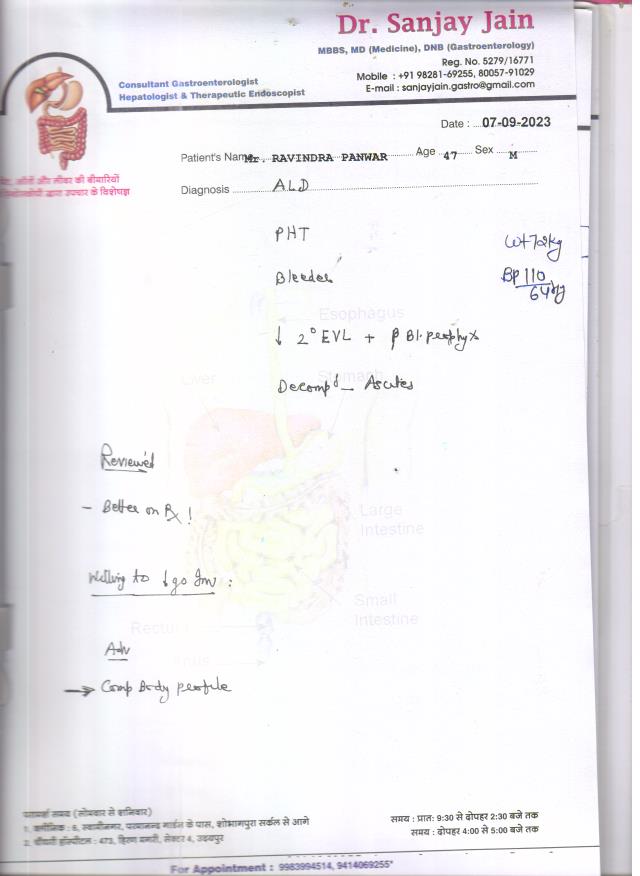 Dr. Sanjay Jain
MBBS, MD (Medicine), DNB (Gastroenterology)
Reg. No. 5279/16771
Mobile : +91 98281-69255, 80057-91029
E-mail : sanjayjain.gastro@gmail.com
Consultant Gastroenterologist
Hepatologist & Therapeutic Endoscopist
आंतों और लीवर की बीमारियों
द्वारा उपचार के विशेषज्ञ
Date : 07-09-2023
Patient's Name Mr. RAVINDRA PANWAR Age 47 Sex M
Diagnosis ALD
PHT
Wt 72kg
Bleeder
BP 110/64
Esophagus
↓ 2° EVL + β Bl.
Liver
Stomach
Decomp^d - Ascites
Reviewed
- Better on Rx!
Large
Intestine
Willing to ↓go Inv :
Small
Intestine
Rectum
Anus
Adv
→ Comp Body profile
परामर्श समय (सोमवार से शनिवार)
1. क्लीनिक : 6, स्वामीनगर, परमानन्द गार्डन के पास, शोभागपुरा सर्कल से आगे
2. हॉस्पीटल : 473, हिरण मगरी, सेक्टर 4, उदयपुर
समय : प्रातः 9:30 से दोपहर 2:30 बजे तक
समय : दोपहर 4:00 से 5:00 बजे तक
For Appointment : 9983994514, 9414069255*